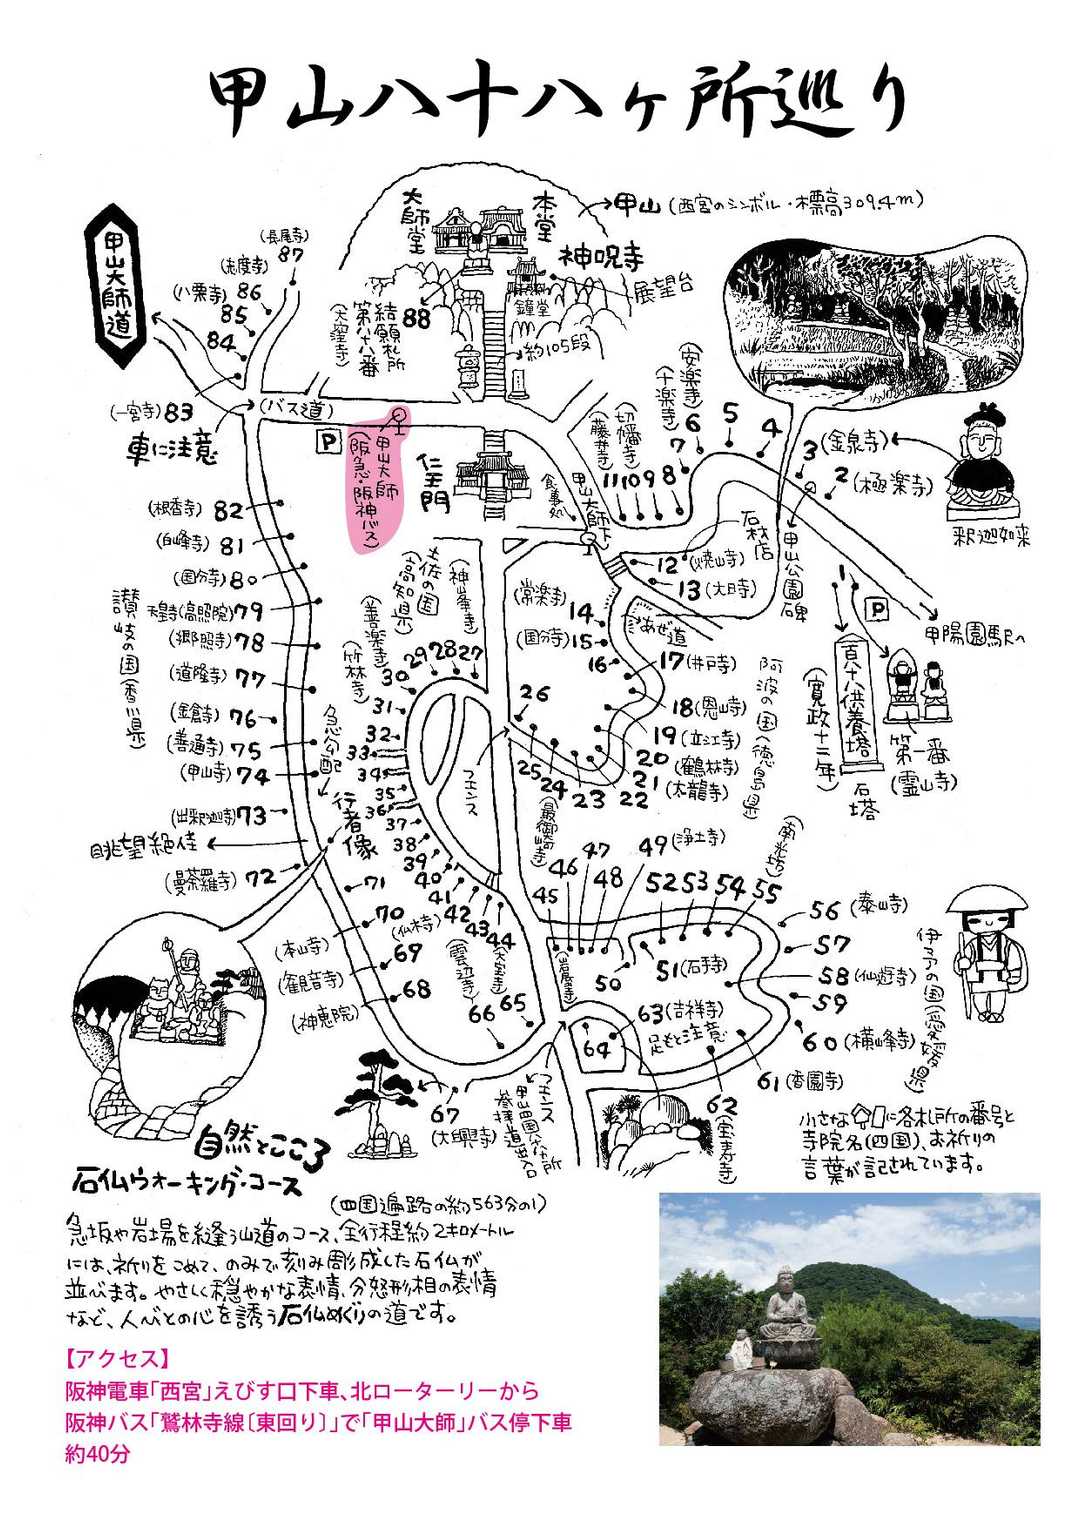 甲山八十八ヶ所巡り
甲山大師道
大師堂
本堂
甲山(西宮のシンボル・標高309.4m)
神呪寺
展望台
鐘堂
約105段
88
結願札所
第八十八番
(大窪寺)
(長尾寺)
87
(志度寺)
86
(八栗寺)
85
84
(一宮寺)83
車に注意
(バス道)
P
甲山大師
(阪急・阪神バス)
仁王門
食事処
甲山大師下
(藤井寺)
切幡寺)
(十楽寺)
(安楽寺)
11 10 9 8
7
6
5
4
3(金泉寺)
2(極楽寺)
釈迦如来
石材店
12(焼山寺)
13(大日寺)
甲山公園碑
1
P
甲陽園駅へ
百八十八供養塔
(寛政十二年)
石塔
第一番
(霊山寺)
あぜ道
(常楽寺)
14
(国分寺)15
16
17(井戸寺)
18(恩山寺)
19(立江寺)
20(鶴林寺)
21(太龍寺)
22
23
24
25
26
阿波の国(徳島県)
(最御崎寺)
土佐の国
(高知県)
(神峯寺)
27
28
29
(善楽寺)
30
(竹林寺)
31
32
33
34
35
36
37
38
39
40
41
42
43
44
フェンス
(根香寺) 82
(白峰寺) 81
(国分寺) 80
天皇寺(高照院)79
(郷照寺)78
(道隆寺)77
(金倉寺)76
(善通寺)75
(甲山寺)74
(出釈迦寺)73
讃岐の国(香川県)
急勾配
行者像
眺望絶佳
(曼荼羅寺) 72
71
70
(本山寺)
(観音寺)
69
(神恵院)
68
(仏木寺)
(雲辺寺)
66
65
(大宝寺)
(岩屋寺)
45
46
47
48
49(浄土寺)
50
51(石手寺)
52
53
54
55
(南光坊)
56(泰山寺)
57
58(仙遊寺)
59
60(横峰寺)
61(香園寺)
62
(宝寿寺)
63(吉祥寺)
足もと注意
64
伊予の国(愛媛県)
67
(大興寺)
フェンス
甲山四国八十八ヶ所
参拝道出入口
小さな に各札所の番号と
寺院名(四国)、お祈りの
言葉が記されています。
自然とこころ
石仏ウォーキング・コース
(四国遍路の約563分の1)
急坂や岩場を縫う山道のコース、全行程約2キロメートル
には、祈りをこめて、のみで刻み彫成した石仏が
並べます。やさしく穏やかな表情、分怒形相の表情
など、人びとの心を誘う石仏めぐりの道です。
【アクセス】
阪神電車「西宮」えびす口下車、北ロータ―リーから
阪神バス「鷲林寺線〔東回り〕」で「甲山大師」バス停下車
約40分